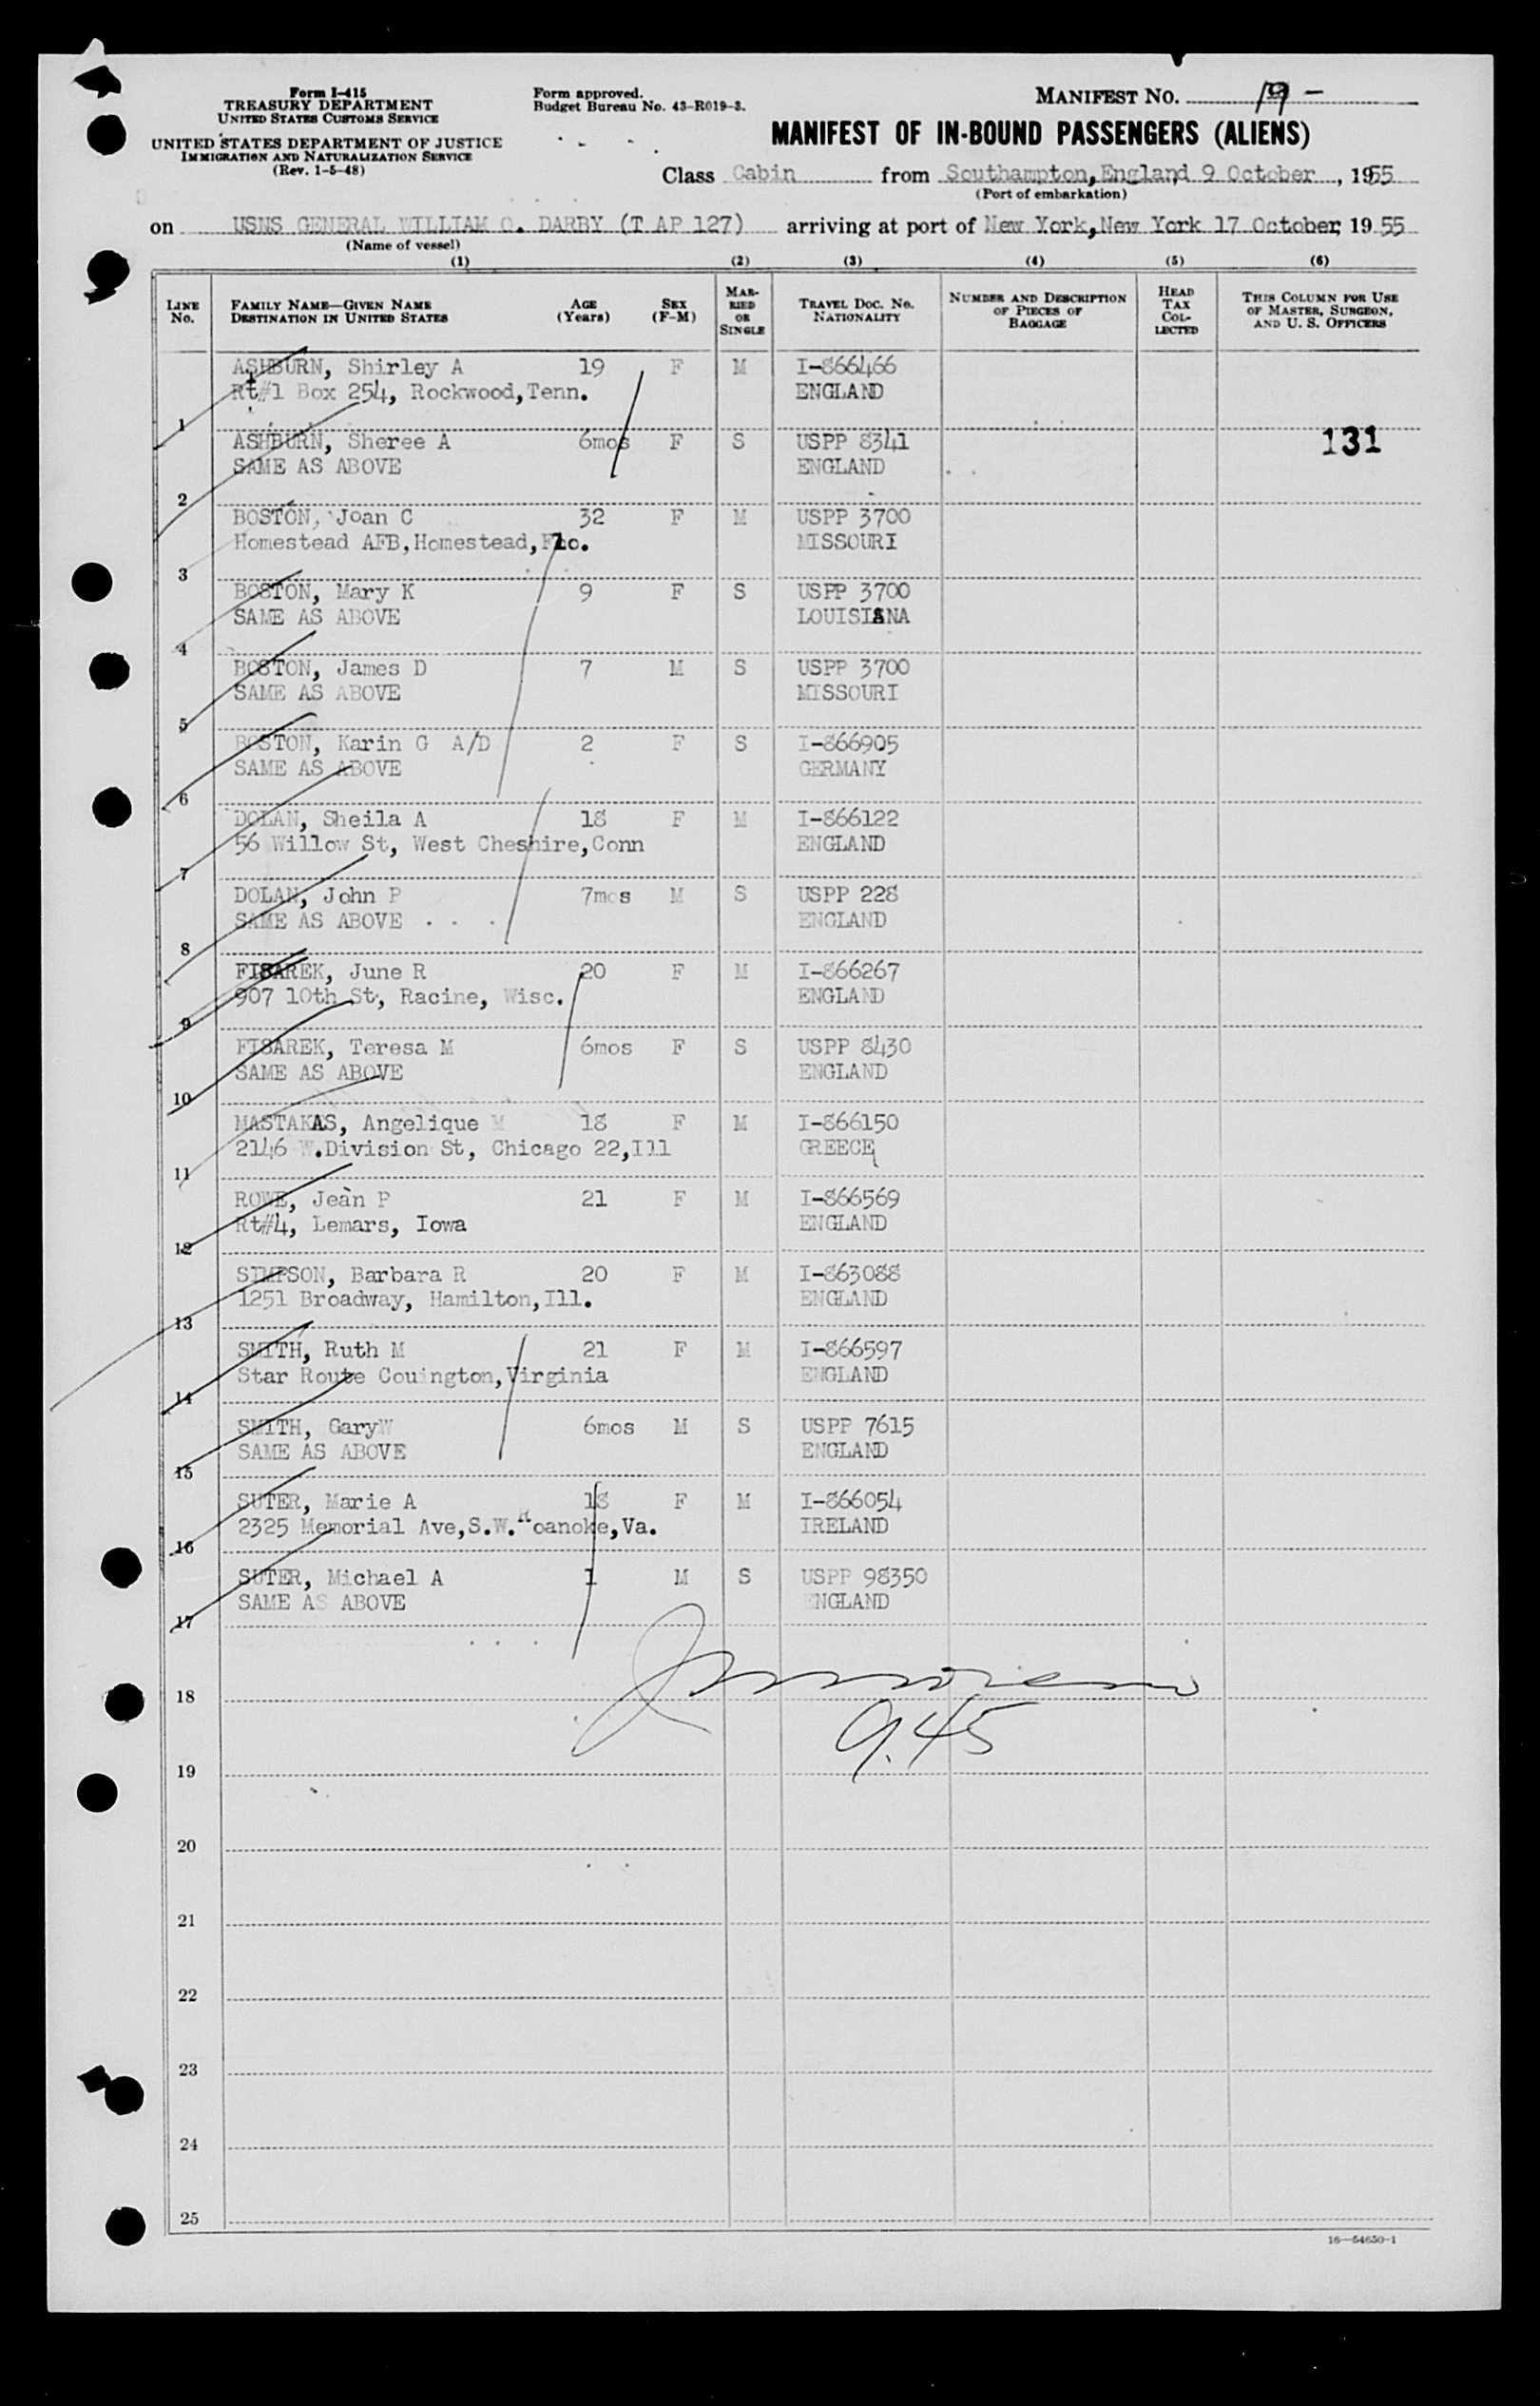 Form I-415
TREASURY DEPARTMENT
UNITED STATES CUSTOMS SERVICE
UNITED STATES DEPARTMENT OF JUSTICE
IMMIGRATION AND NATURALIZATION SERVICE
(Rev. 1-5-48)
Form approved.
Budget Bureau No. 43-R019-3.
MANIFEST NO. 19 -
MANIFEST OF IN-BOUND PASSENGERS (ALIENS)
Class Cabin from Southampton, England 9 October, 1955
(Port of embarkation)
on USNS GENERAL WILLIAM O. DARBY (T AP 127) arriving at port of New York, New York 17 October, 1955
(Name of vessel)
(1) (2) (3) (4) (5) (6)
LINE NO. FAMILY NAME—GIVEN NAME DESTINATION IN UNITED STATES AGE (Years) SEX (F-M) MARRIED OR SINGLE TRAVEL DOC. NO. NATIONALITY NUMBER AND DESCRIPTION OF PIECES OF BAGGAGE HEAD TAX COLLECTED THIS COLUMN FOR USE OF MASTER, SURGEON, AND U. S. OFFICERS
ASHBURN, Shirley A 19 F M I-866466
Rt#1 Box 254, Rockwood, Tenn. ENGLAND
1
ASHBURN, Sheree A 6mos F S USPP 8341 131
SAME AS ABOVE ENGLAND
2
BOSTON, Joan C 32 F M USPP 3700
Homestead AFB, Homestead, MISSOURI
3
BOSTON, Mary K 9 F S USPP 3700
SAME AS ABOVE LOUISIANA
4
BOSTON, James D 7 M S USPP 3700
SAME AS ABOVE MISSOURI
5
BOSTON, Karin G A/D 2 F S I-866905
SAME AS ABOVE GERMANY
6
DOLAN, Sheila A 18 F M I-866122
56 Willow St, West Cheshire, Conn ENGLAND
7
DOLAN, John P 7mos M S USPP 228
SAME AS ABOVE ENGLAND
8
FISAREK, June R 20 F M I-866267
907 10th St, Racine, Wisc. ENGLAND
9
FISAREK, Teresa M 6mos F S USPP 8430
SAME AS ABOVE ENGLAND
10
MASTAKAS, Angelique M 18 F M I-866150
2146 W.Division St, Chicago 22, Ill GREECE
11
ROWE, Jean P 21 F M I-866569
Rt#4, Lemars, Iowa ENGLAND
12
SIMPSON, Barbara R 20 F M I-863088
1251 Broadway, Hamilton, Ill. ENGLAND
13
SMITH, Ruth M 21 F M I-866597
Star Route Couington, Virginia ENGLAND
14
SMITH, Gary W 6mos M S USPP 7615
SAME AS ABOVE ENGLAND
15
SUTER, Marie A 18 F M I-866054
2325 Memorial Ave, S.W. Roanoke, Va. IRELAND
16
SUTER, Michael A 1 M S USPP 98350
SAME AS ABOVE ENGLAND
17
18
9.45
19
20
21
22
23
24
25
16—54650-1